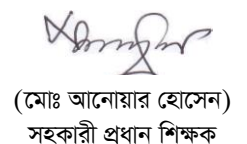 (মোঃ আনোয়ার হোসেন)
সহকারী প্রধান শিক্ষক